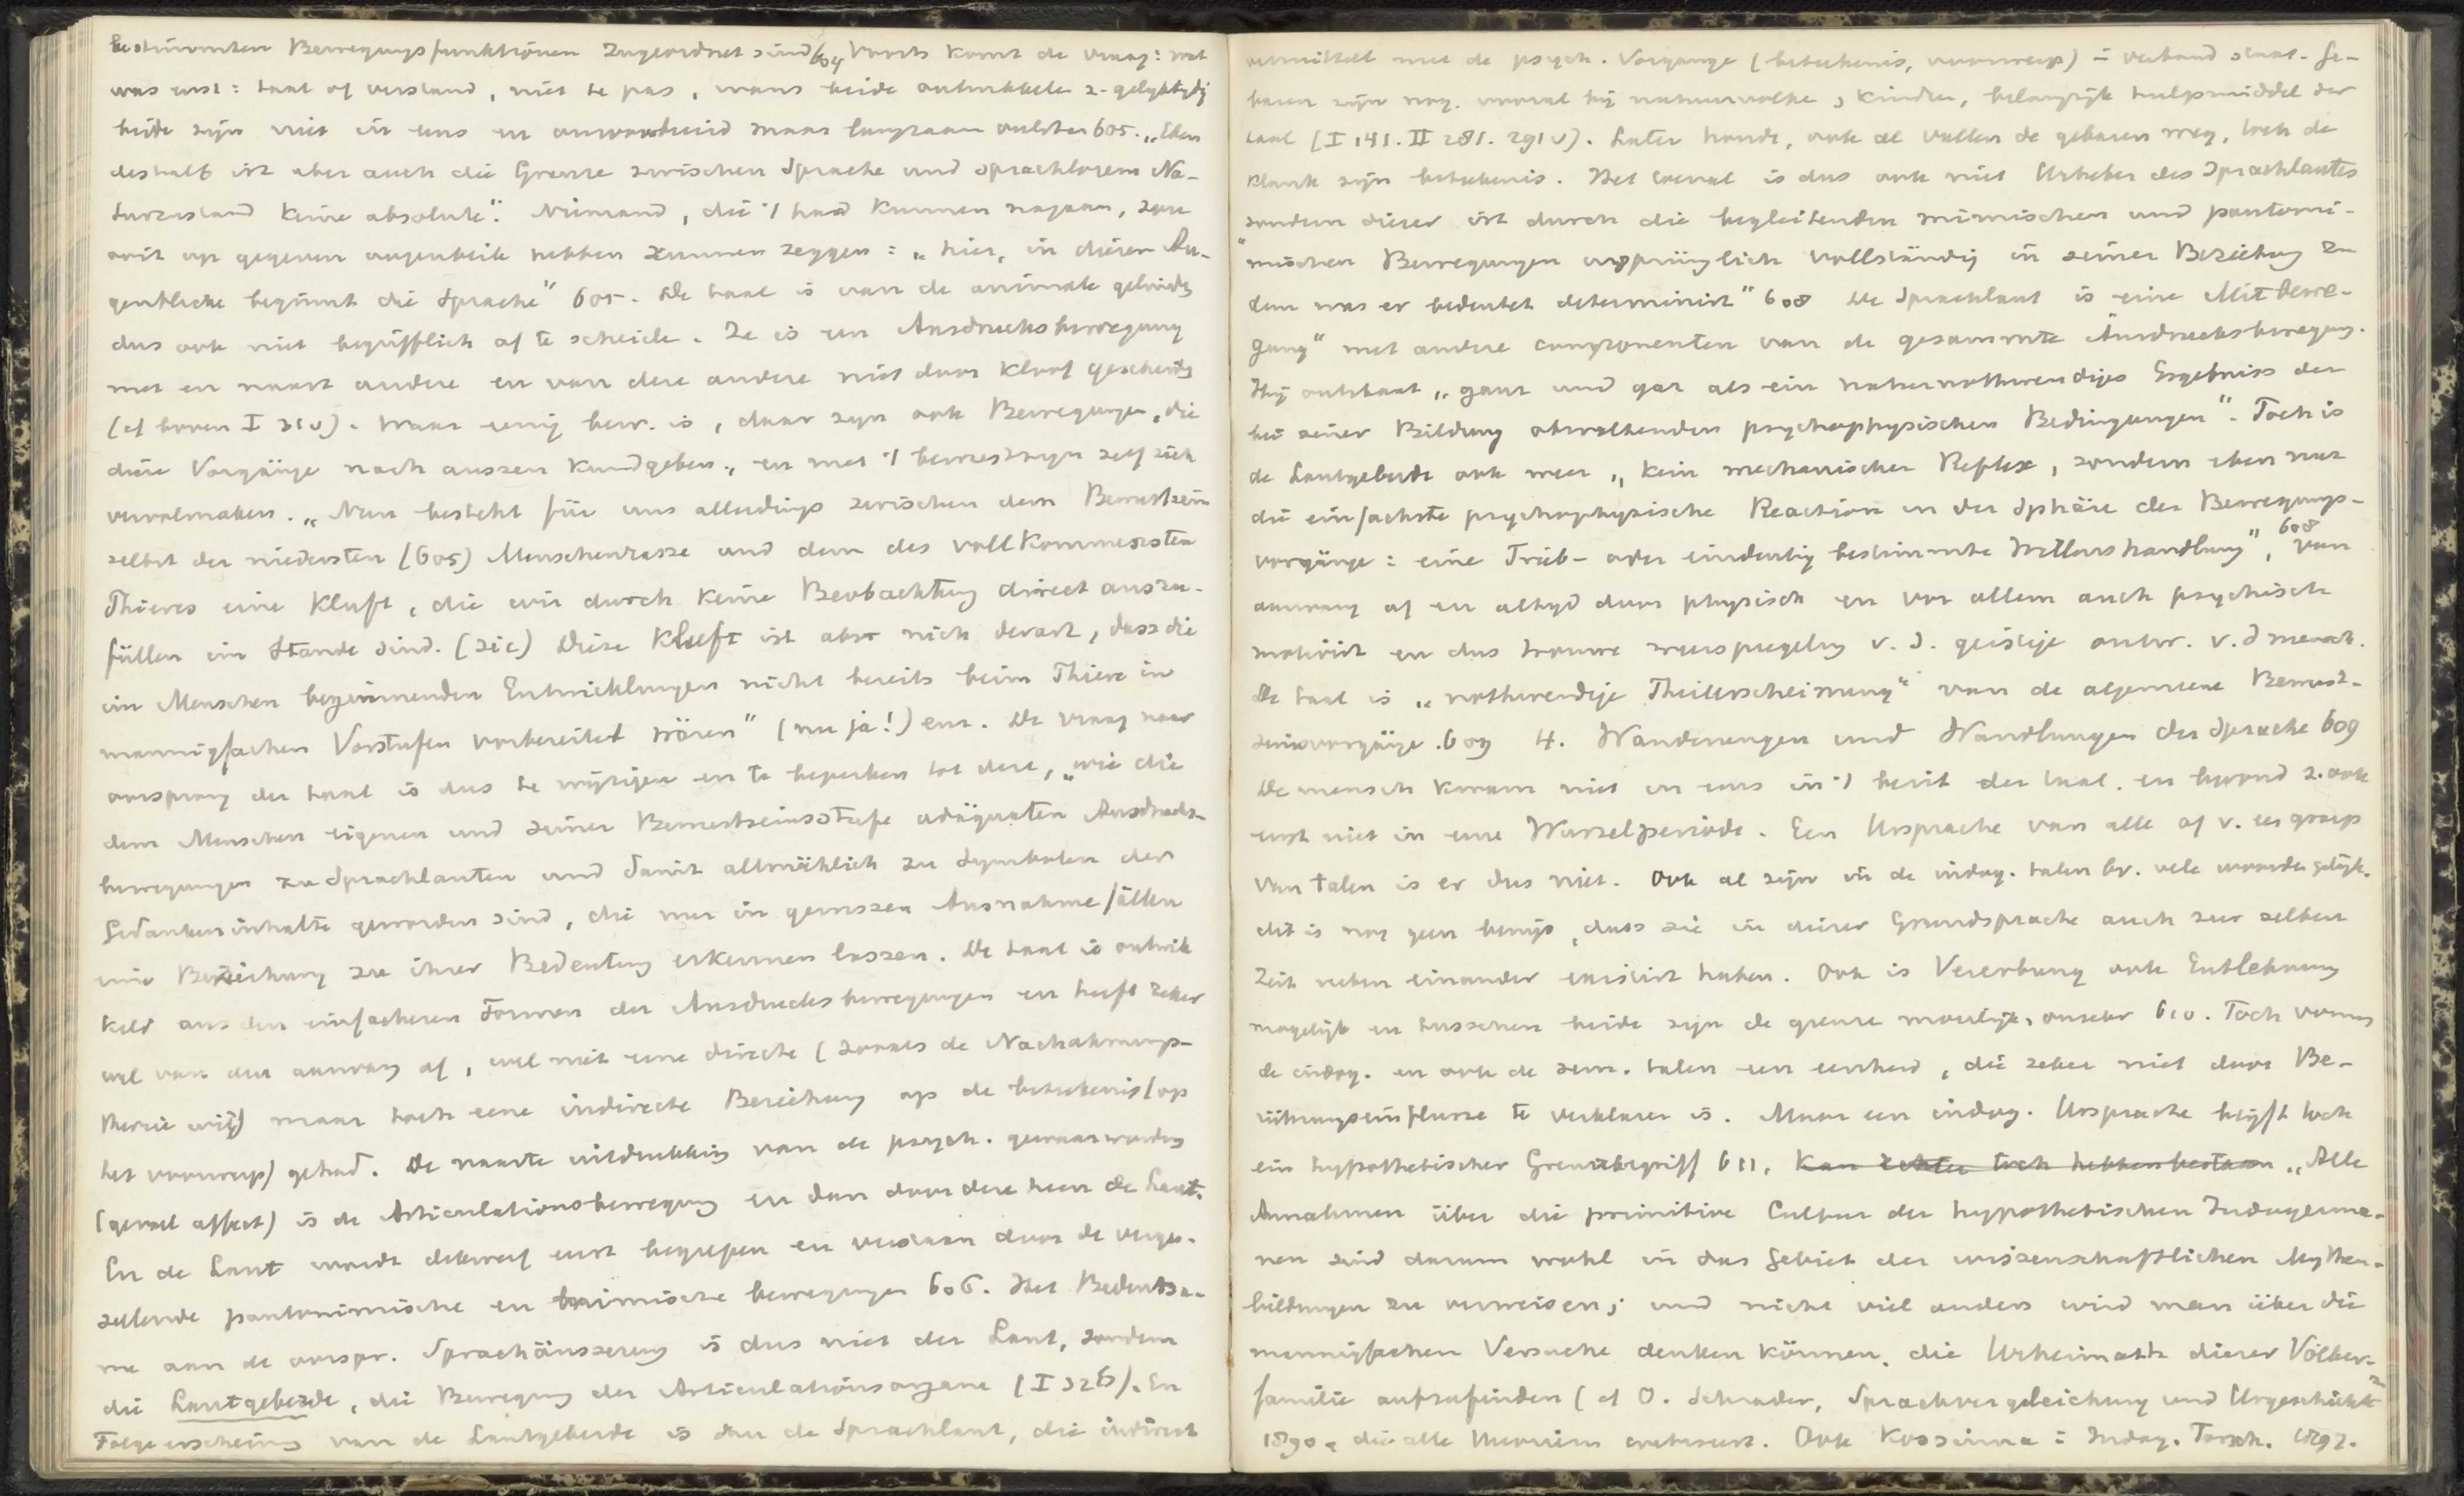 bestimmten Bewegungsfunktionen zugeordnet sind 604 Voorts komt de vraag: wat
was eerst: taal of verstand, niet te pas, want beide ontwikkele z. gelyktydig
beide zijn niet in eens en onvoorbereid maar langzaam 605. „Eben
deshalb ist aber auch die Grenze zwischen Sprache und sprachlosem Na-
turzustand keine absolute". Niemand, die 't had kunnen nagaan, zou
ooit op gegeven oogenblik hebben kunnen zeggen: „hier, in diesem Au-
genblicke beginnt die Sprache" 605. De taal is van de animale geluiden
dus ook niet begrifflich af te scheide. Ze is een Ausdrucksbewegung
met en naast andere en van deze andere niet door kloof gescheide
(cf boven I 31v). Waar eenig bew. is, daar zyn ook Bewegungen, die
diese Vorgänge nach aussen kundgeben„ en met 't bewustzyn zelf zich
vervolmaken. „Nun besteht für uns allerdings zwischen dem Bewustsein
selbst der niedersten (605) Menschenrasse und dem des vollkommensten
Thieres eine Kluft, die wir durch keine Beobachtung direct auszu-
füllen im Stande sind. (sic) Diese Kluft ist aber nich derart, dass die
im Menschen beginnenden Entwicklungen nicht bereits beim Thiere in
mannigfachen Vorstufen vorbereitet wären" (nu ja!) enz. De vraag naar
oorsprong der taal is dus te wijzigen en te beperken tot deze, „wie die
dem Menschen eigenen und seiner Bewustseinsstufe adäquaten Ausdrucks-
bewegungen zu Sprachlauten und damit allmählich zu Symbolen der
Gedankeninhalte geworden sind, die nur in gewissen Ausnahmefällen
eine Beziehung zu ihrer Bedeutung erkennen lassen. De taal is ontwik
keld aus den einfacheren Formen der Ausdrucksbewegungen en heeft zeker
wel van den aanvang af, wel niet eene directe (zooals de Nachahmungs-
theorie wil) maar toch eene indirecte Beziehung op de beteekenis (op
het voorwerp) gehad. De naaste uitdrukking van de psych. gewaarwording
(gevoel affect) is de Articulationsbewegung en dan door deze heen de Laut.
En de Laut wordt dikwerf eerst begrepen en verstaan door de verge-
zellende pantomimische en mimische bewegungen 606. Het Bedeutsa-
me aan de oorspr. Sprachäusserung is dus niet der Laut, sondern
die Lautgeberde, die Bewegung der Articulationsorgane (I 326). En
Folgeerscheinung van de Lautgeberde is dan de Sprachlaut, die indirect
vermittelt met de psych. Vorgange (beteekenis, voorwerp) in verband staat. Ge-
baren zijn nog vooral bij natuurvolke, kinder, belangrijk hulpmiddel der
taal (I 141. II 281. 291v). Later hande, ook al vallen de gebaren weg, toch de
klank zijn beteekenis. Het toeval is dus ook niet Urheber des Sprachlautes
sondern dieser ist durch die begleitenden mimischen und pantomi-
"mischen Bewegungen ursprünglich vollständig in seiner Beziehung zu
dem was er bedeutet determinirt" 608 De Sprachlaut is eine „Mitbewe-
gung" met andere componenten van de gesammte Ausdrucksbewegung.
Hij ontstaat „ganz und gar als ein naturnothwendiges Ergebniss der
bei seiner Bildung obwaltenden psychophysischen Bedingungen". Toch is
de Lautgeberde ook weer „kein mechanischer Reflex, sondern eben nur
die einfachste psychophysische Reaction in der Sphäre der Bewegungs-
vorgänge: eine Trieb- oder eindeutig bestimmte Willenshandlung", 608 van
aanvang af en altyd door physisch en vor allem auch psychisch
motivirt en dus trouwe weerspiegeling v. d. geistige ontw. v. d mensch.
De taal is „nothwendige Theilerscheinung" van de algemeene Bewust-
seinsvorgänge. 609 4. Wanderungen und Wandlungen der Sprache 609
De mensch kwam niet in eens in 't bezit der taal. en bevond z. ook
eerst niet in eene Wurzelperiode. Een Ursprache van alle of v. een groep
van talen is er dus niet. Ook al zijn in de indog. talen bv. vele woorden gelijk.
dit is nog geen bewijs, dass sie in dieser Grundsprache auch zur selben
Zeit neben einander existirt haben. Ook is Vererbung ook Entlehnung
mogelijk en tusschen beide zijn de grenze moeilijk, onzeker 610. Toch vormen
de indog. en ook de sem. talen een eenheid, die zeker niet door Be-
rührungseinflusse te verklaren is. Maar een indog. Ursprache blijft toch
ein hypothetischer Grenzbegriff 611. Kan echter toch hebben bestaan „Alle
Annahmen über die primitive Cultur der hypothetischen Indogerma-
nen sind darum wohl in das Gebiet der wissenschaftlichen Mythen-
bildungen zu verweisen; und nicht viel anders wird man über die
mannigfachen Versuche denken können, die Urheimath dieser Völker-
familie aufzufinden (cf O. Schrader, Sprachvergleichung und Urgeschichte²
1890, die alle theorieen critiseert. Ook Kossinna: Indog. Forsch. 1897.